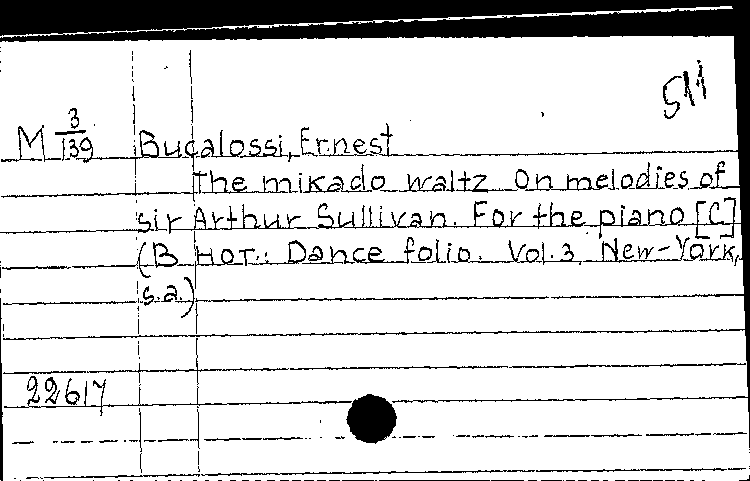 511
M 3/139 Bucalossi, Ernest
The mikado waltz On melodies of
sir Arthur Sullivan. For the piano [C]
(В нот.: Dance folio. Vol. 3, New-York,
s.a.)
22617